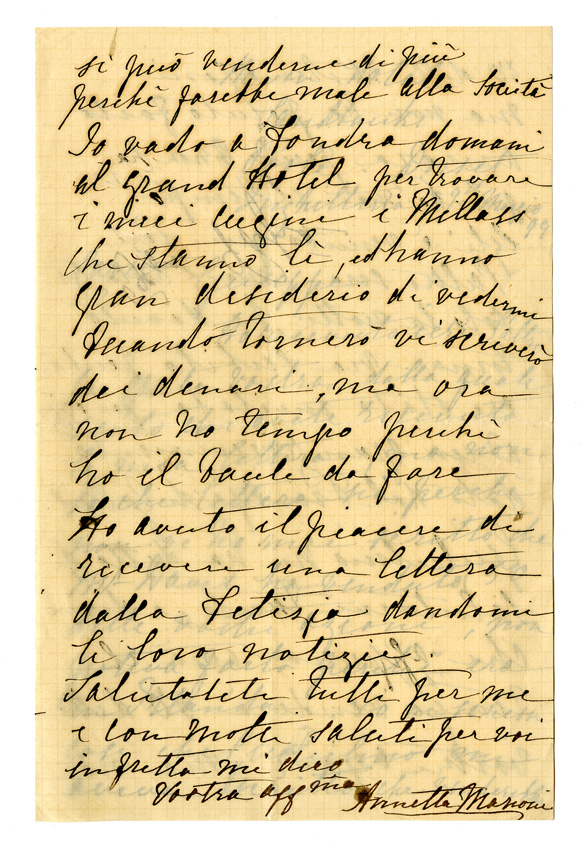 si può venderne di più
perchè farebbe male alla Società
Io vado a Londra domani
al grand Hotel per trovare
i miei cugini i Millass
che stanno lì, ed hanno
gran desiderio di vedermi
Quando tornerò vi scriverò
dei denari, ma ora
non ho tempo perchè
ho il baule da fare
Ho avuto il piacere di
ricevere una lettera
dalla Letizia dandomi
le loro notizie.
Salutateli tutti per me
e con molti saluti per voi
in fretta mi dico
Vostra affma Annetta Marconi